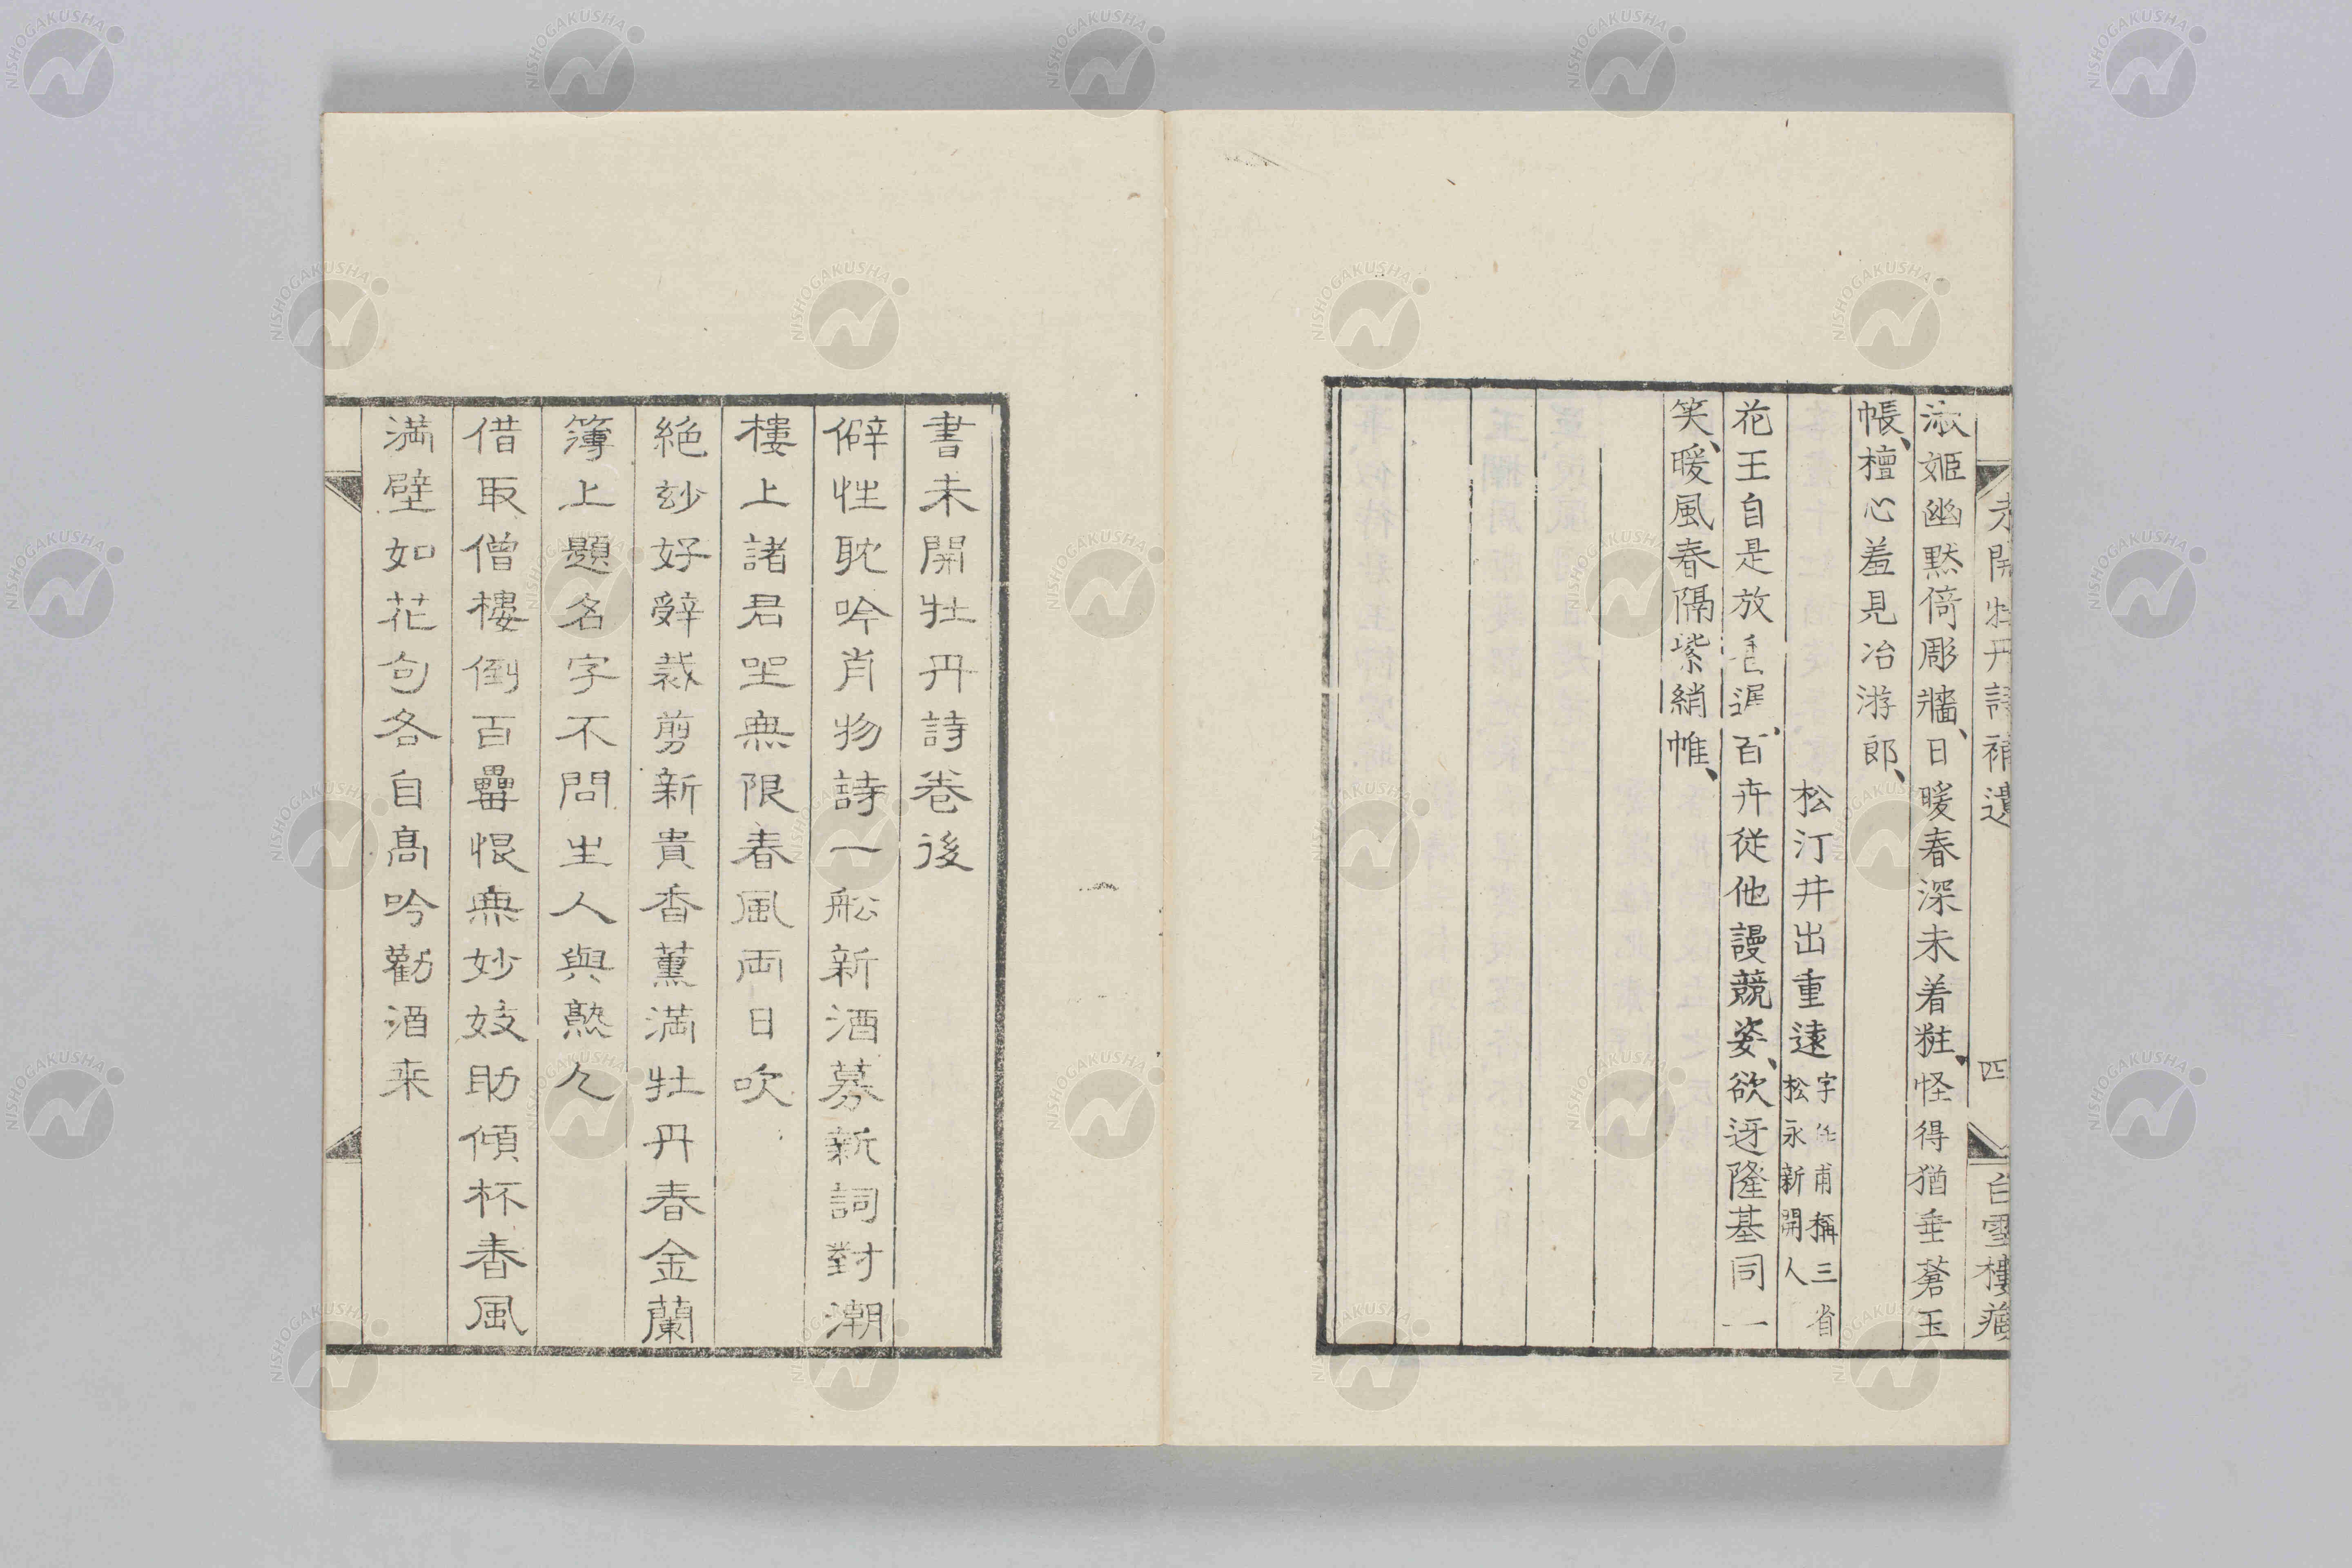 未開牡丹詩補遺 四 白雪樓藏
淑姬幽黙倚彫牆、日暖春深未着粧、怪得猶垂蒼玉
帳、檀心羞見冶游郎、
松汀井出重遠 字 甫稱三省
松永新開人
花王自是放 遲、百卉從他謾競姿、欲迓隆基同一
笑、暖風春隔紫綃帷、
書未開牡丹詩卷後
僻性耽吟肖物詩一舩新酒募新詞對潮
樓上諸君坐無限春風両日吹
絶玅好辤裁剪新貴香薫満牡丹春金蘭
簿上題名字不問生人與熟人
借取僧樓倒百罍恨無妙妓助傾杯春風
満壁如花句各自髙吟勸酒来
NISHOGAKUSHA